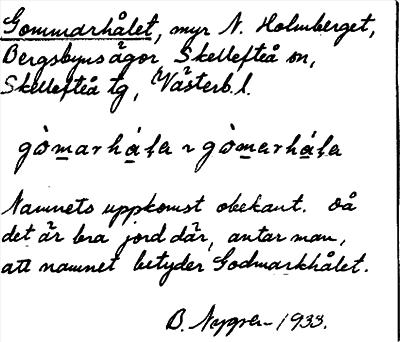 Gommarhålet, myr N. Holmberget,
Bergsbyns ägor Skellefteå sn,
Skellefteå tg, Västerb.l.
gòmarháḷa ~ gòmarháḷa
Namnets uppkomst obekant. Då
det är bra jord där, antar man,
att namnet betyder Godmarkhålet.
B. Nygren 1933.